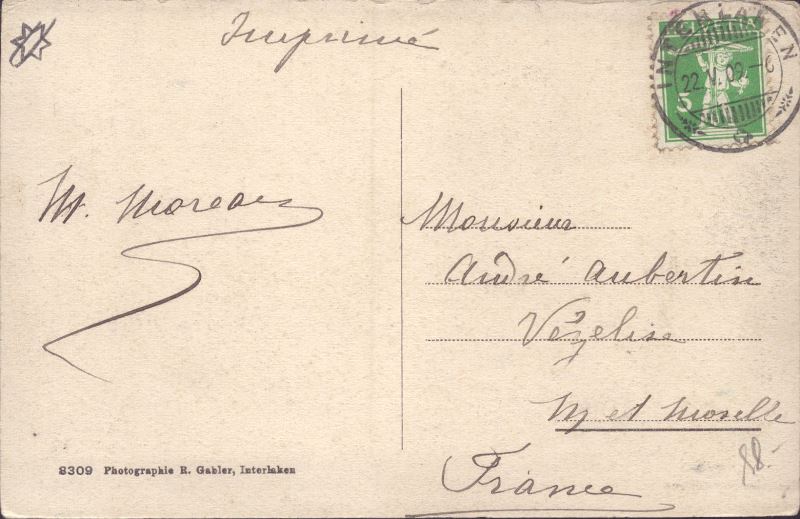 Imprimé
HELVETIA
INTERLAKEN
22.V.09.-6
5
M. Moreau
Monsieur
André Aubertin
Vézelise
M et Moselle
France
8309 Photographie R. Gabler, Interlaken